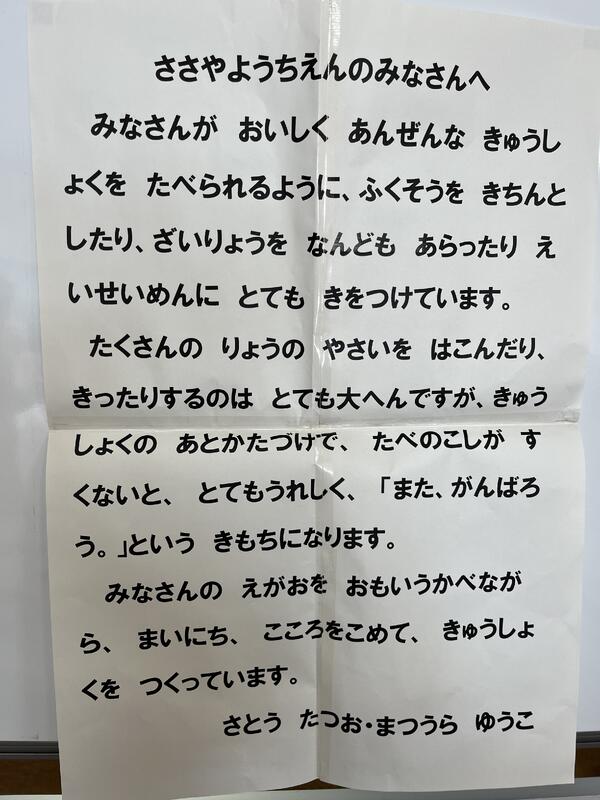 ささやようちえんのみなさんへ
みなさんが おいしく あんぜんな きゅうし
ょくを たべられるように、ふくそうを きちんと
したり、ざいりょうを なんども あらったり え
いせいめんに とても きをつけています。
たくさんの りょうの やさいを はこんだり、
きったりするのは とても大へんですが、きゅう
しょくの あとかたづけで、 たべのこしが す
くないと、 とてもうれしく、 「また、がんばろ
う。」という きもちになります。
みなさんの えがおを おもいうかべなが
ら、 まいにち、 こころをこめて、 きゅうしょ
くを つくっています。
さとう たつお・まつうら ゆうこ